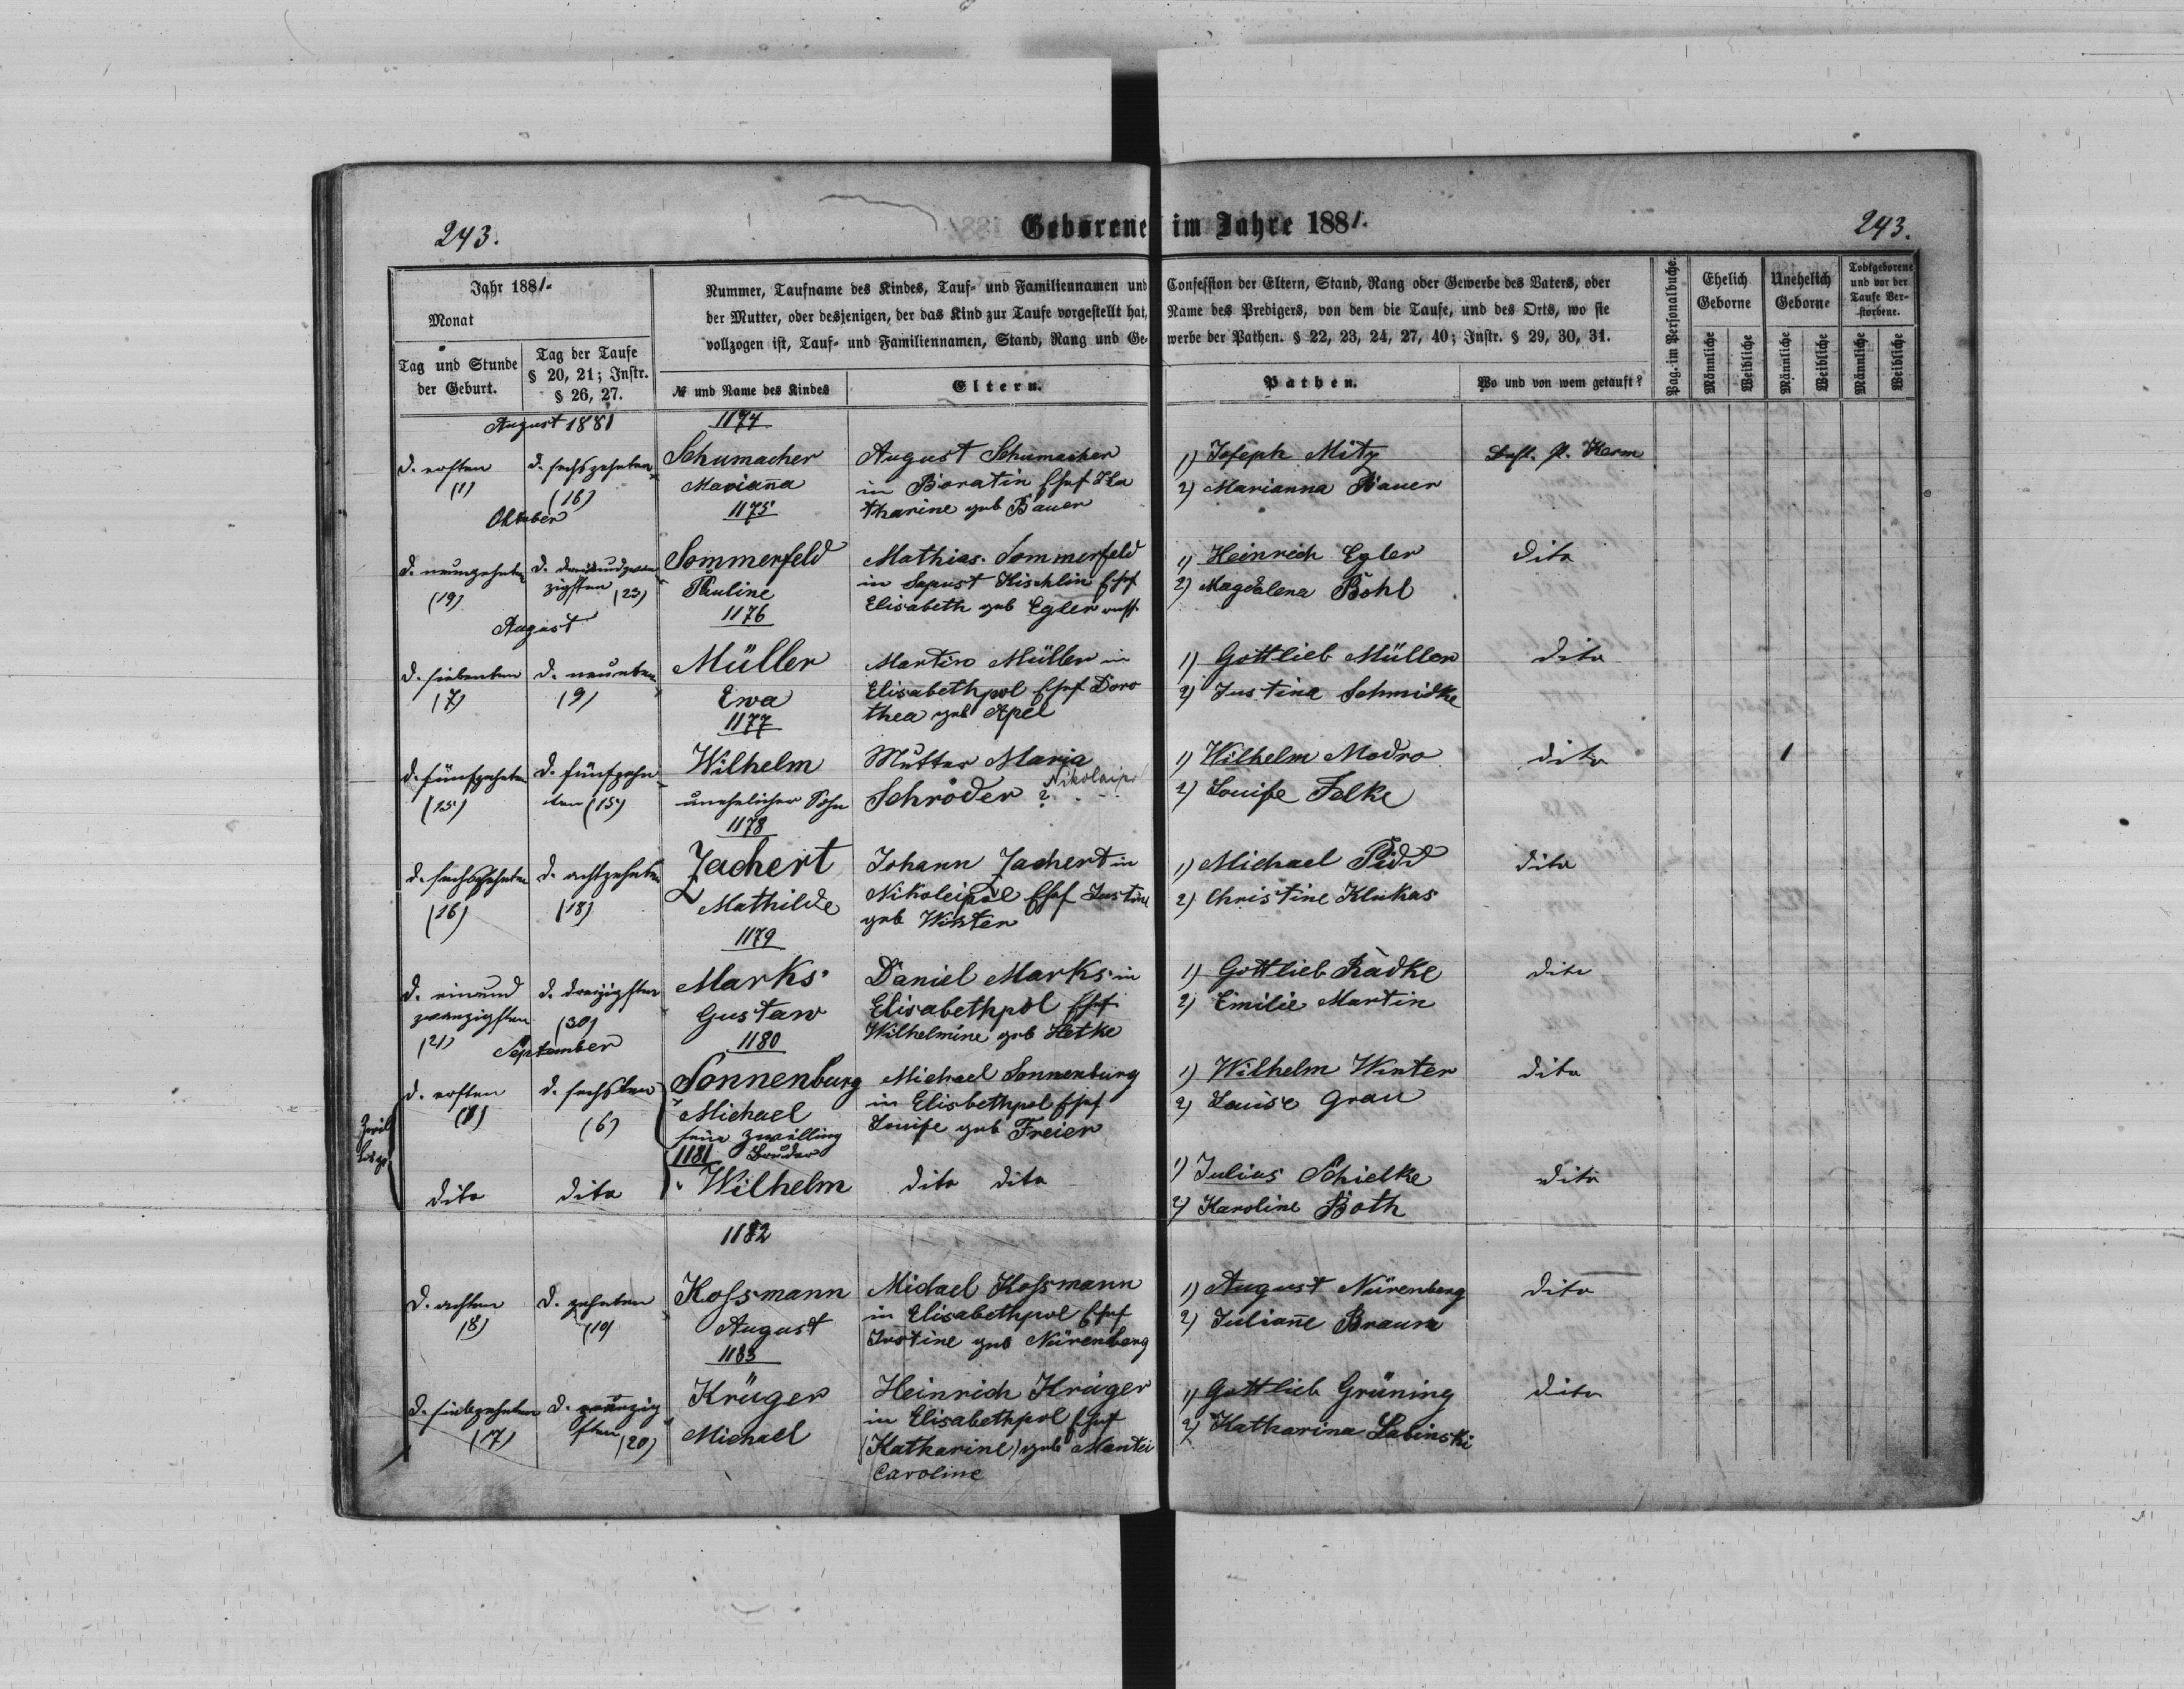 243.
Geborene im Jahre 1881.
243.
Jahr 1881.
Monat
Tag und Stunde der Geburt.
Tag der Taufe § 20, 21; Instr. § 26, 27.
Nummer, Taufname des Kindes, Tauf- und Familiennamen und Confession der Eltern, Stand, Rang oder Gewerbe des Vaters, oder
der Mutter, oder desjenigen, der das Kind zur Taufe vorgestellt hat, Name des Predigers, von dem die Taufe, und des Orts, wo sie
vollzogen ist, Tauf- und Familiennamen, Stand, Rang und Gewerbe der Pathen. § 22, 23, 24, 27, 40; Instr. § 29, 30, 31.
№ und Name des Kindes
Eltern.
Pathen.
Wo und von wem getauft?
Pag. im Personalbuche.
Ehelich Geborne
Unehelich Geborne
Todtgeborene und vor der Taufe Verstorbene.
Männliche Weibliche Männliche Weibliche Männliche Weibliche
August 1881 1174
d. ersten d. sechszehnten Schumacher August Schumacher 1) Joseph Mitz Kerm
(1) (16) Marianna in Boratin Ehef Ka 2) Marianna Bauer
Oktober 1175 tharine geb Bauer
d. neunzehnten d. dreiundzwan Sommerfeld Mathias Sommerfeld 1) Heinrich Egler dito
(19) zigsten (23) Pauline in Sapust Kischlin Ehef 2) Magdalena Bohl
August 1176 Elisabeth geb Egler
d. siebenten d. neunten Müller Martin Müller in 1) Gottlieb Müller dito
(7) (9) Ewa Elisabethpol Ehef Doro 2) Justine Schmidke
1177 thea geb Apel
d. fünfzehnten d. fünfzehn Wilhelm Mutter Maria 1) Wilhelm Modro dito 1
(15) ten (15) unehelicher Sohn Schröder ? Nikolaipol 2) Louise Felke
1178
d. sechszehnten d. achtzehnten Zachert Johann Zachert in 1) Michael Pidd dito
(16) (18) Mathilde Nikoleipol Ehef Justine 2) Christine Klukas
1179 geb Winter
d. einund d. dreizigsten Marks Daniel Marks in 1) Gottlieb Rädke dito
zwanzigsten (30) Gustaw Elisabethpol Ehef 2) Emilie Martin
(21) September 1180 Wilhelmine geb Hetke
d. ersten d. sechsten Sonnenburg Michael Sonnenburg 1) Wilhelm Winter dito
(1) (6) Michael in Elisbethpol Ehef 2) Louise Grau
Zwil linge sein Zwilling Louise geb Freier
1181 Bruder
dito dito Wilhelm dito dito 1) Julius Schielke dito
2) Karoline Both
1182
d. achten d. zehnten Kossmann Michael Kossmann 1) August Nürenberg dito
(8) (10) August in Elisabethpol Ehef 2) Juliane Braun
1183 Justine geb Nürenberg
d. siebzehnten d. zwanzig Krüger Heinrich Krüger 1) Gottlieb Grüning dito
(17) sten (20) Michael in Elisabethpol Ehef 2) Katharina Labinski
(Katharine) geb Mantei
Caroline